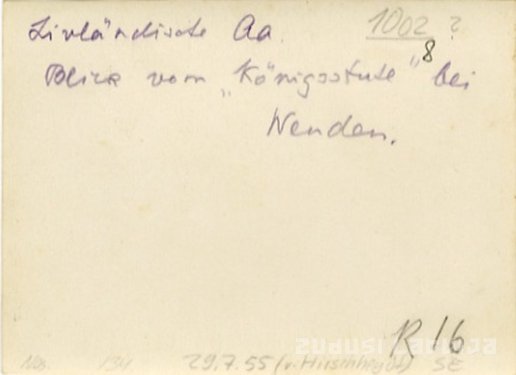 Livländische Aa. 1002 ?
8
Blick vom „Königsstule" bei
Wenden.
R 16
zudusi latvija
134 29.7.55 (v. Hirschheydt) SE